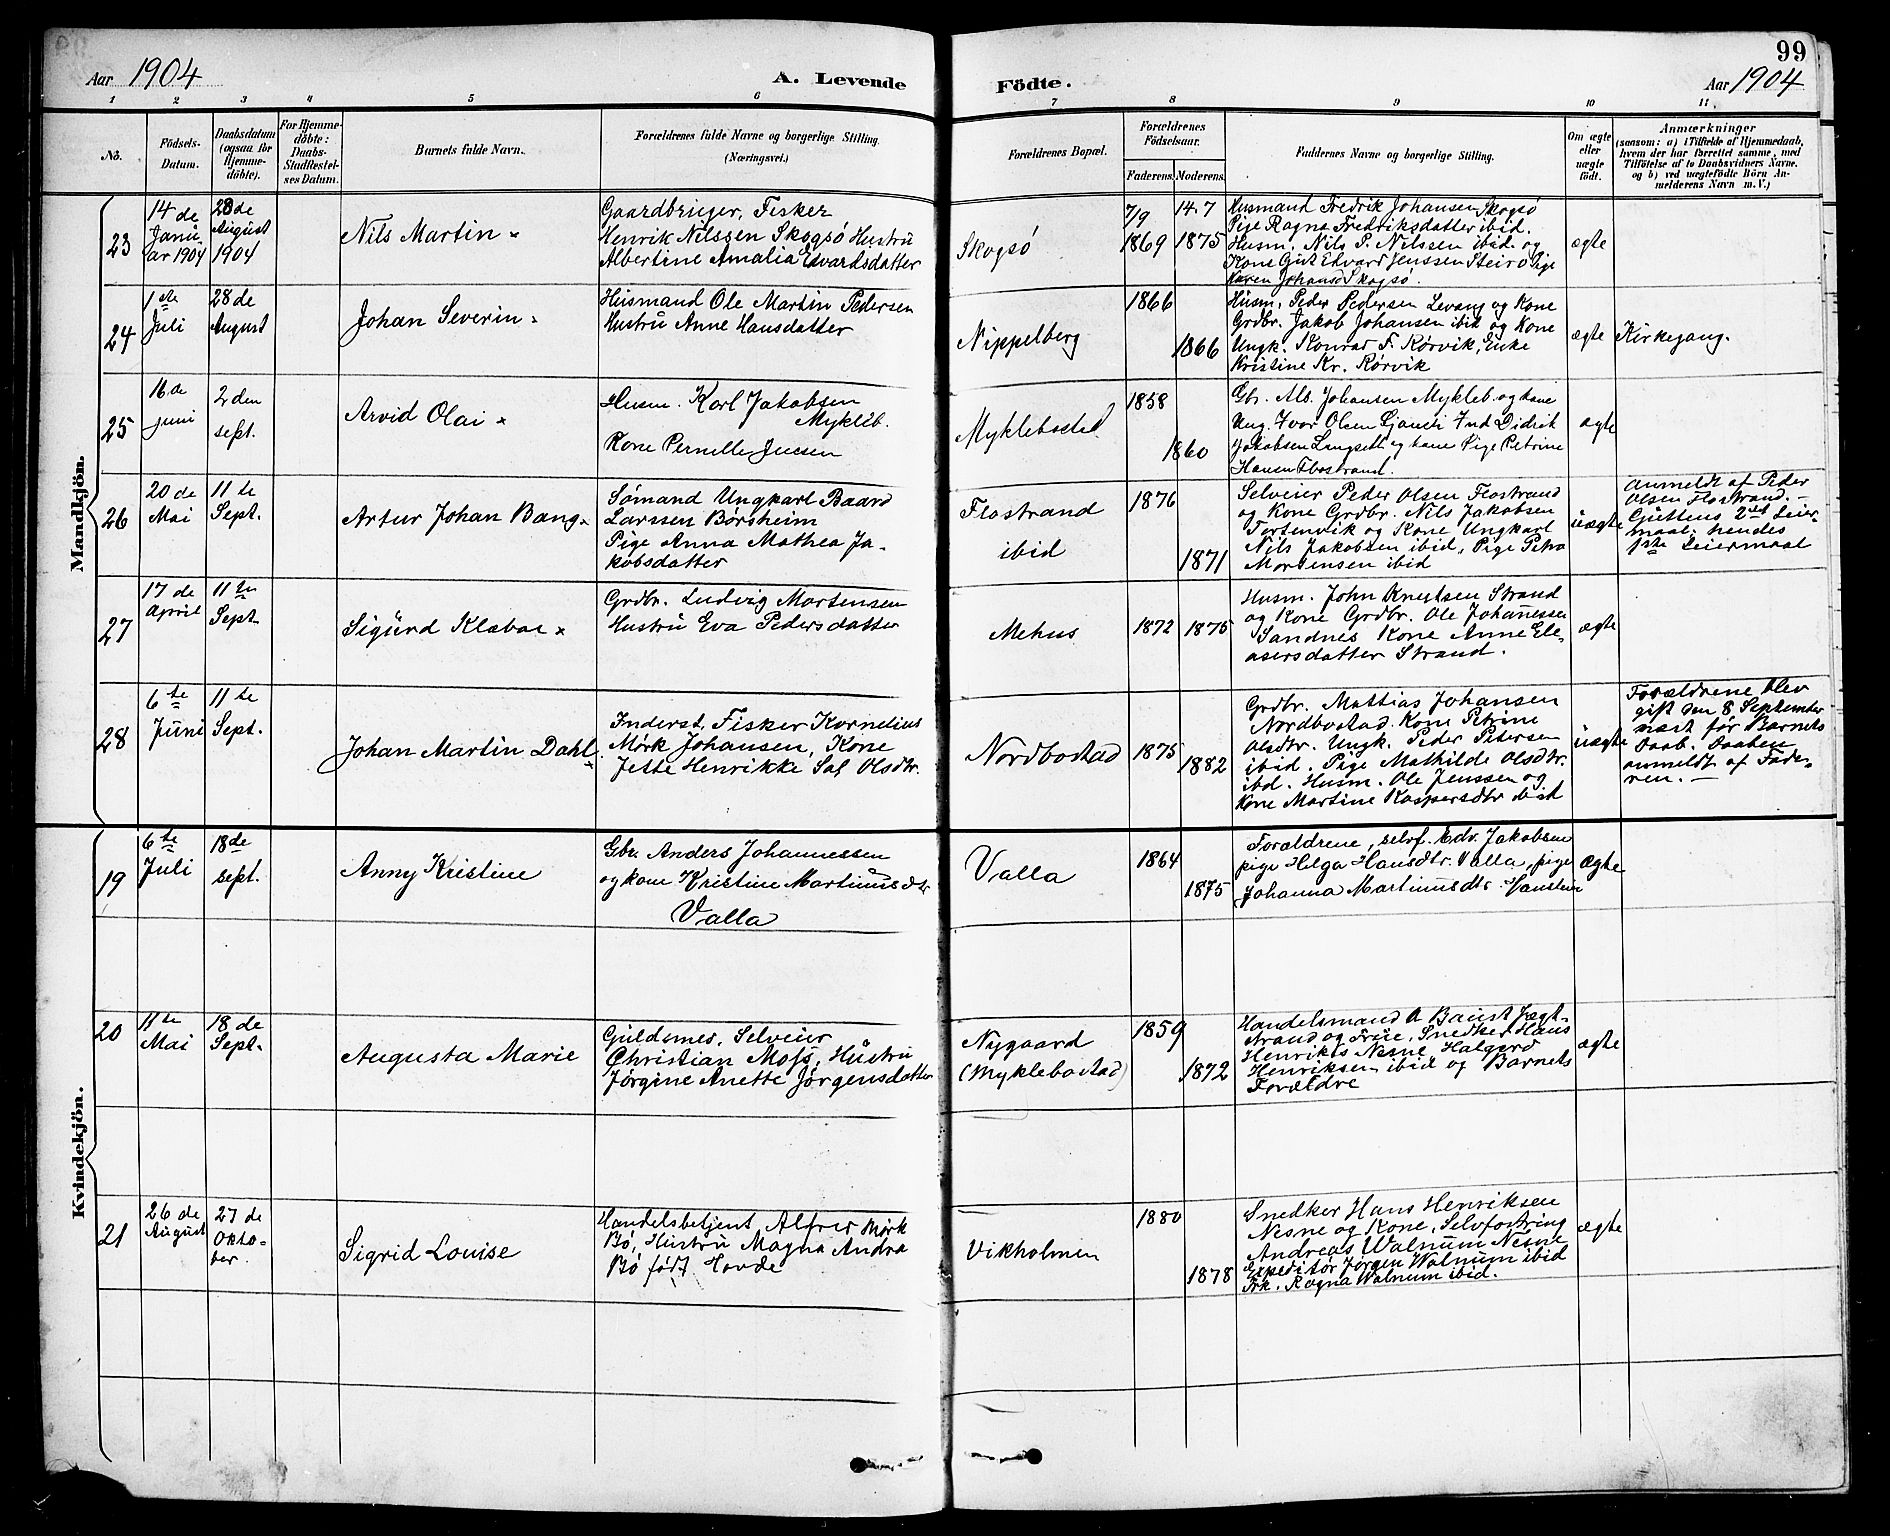 99
Aar 1904
A. Levende
Födte.
Aar 1904
1 2 3 4 5 6 7 8 9 10 11.
No.
Födsels-
Datum.
Daabsdatum
(ogsaa for
Hjemme-
döbte).
For Hjemme-
döbte:
Daabs-
Stadfestel-
ses Datum.
Barnets fulde Navn.
Forældrenes fulde Navne og borgerlige Stilling.
(Næringsvei.)
Forældrenes Bopæl.
Forældrenes
Födselsaar.
Faderens. Moderens.
Faddernes Navne og borgerlige Stilling.
Om ægte
eller
uægte
födt.
Anmærkninger
(saasom: a) i Tilfælde af Hjemmedaab,
hvem der har forrettet samme, med
Tilföielse af to Daabsvidners Navne.
og b) ved uægtefödte Börn An-
melderens Navn m. V.)
Mandkjön.
23
14 de
Janu-
ar 1904
28 de
August
1904
Nils Martin
Gaardbruger, Fisker
Henrik Nilssen Skogsö Hustru
Albertine Amalia Edvardsdatter
Skogsö
7/9
1869
14.7
1875
Husmand Fredrik Johansen Skogsö
Pige Ragna Fredriksdatter ibid.
Husm. Nils P. Nilssen ibid og
Kone Gut Edvard Jenssen Steiro Pige
Karen Johansd Skogsö.
ægte
24
1ste
Juli
28 de
August
Johan Severin
Husmand Ole Martin Pedersen
Hustru Anne Hansdatter
Nippelberg
1866
1866
Husm. Peder Pedersen Levang og Kone
Grdbr. Jakob Johansen ibid og Kone
Ungk. Konrad F. Rörvik, Enke
Kristine Kr. Rörvik
ægte
Kirkegang.
25
16 de
juni
2 den
sept.
Arvid Olai
Husm. Karl Jakobsen
Mykleb.
Kone Pernille Jenssen
Myklebostad
1858
1860
Gbr. Als. Johansen Mykleb. og kone
Ung. Ivar Olsen Ind Didrik
Jakobsen Langseth og kone Pige Petrine
Hansen Flostrand.
ægte
26
20 de
Mai
11 te
Sept.
Artur Johan Bang
Sømand Ungkarl Baard
Larssen Børsheim
Pige Anna Mathea Ja-
kobsdatter
Flostrand
ibid
1876
1871
Selveier Peder Olsen Flostrand
og Kone Grdbr. Nils Jakobsen
Fortenvik og Kone Ungkarl
Nils Jakobsen ibid, Pige Petra
Mortensen ibid
uægte
Anmeldt af Peder
Olsen Flostrand.-
Guttens 2det Leier-
maal, hendes
1ste Leiermaal
27
17 de
April
11 te
Sept.
Sigurd Klæboe
Grdbr. Ludvig Martensen
Hustru Eva Pedersdatter
Mehus
1872
1875
Husm. John Knutsen Strand
og Kone Grdbr. Ole Johannessen
Sandnes Kone Anne Ele-
asersdatter Strand.
ægte
28
6te
Juni
11 te
Sept.
Johan Martin Dahl
Inderst, Fisker Kornelius
Mörk Johansen, Kone
Jette Henrikke Sal Olsdtr.
Nordbostad
1875
1882
Grdbr. Mattias Johansen
Nordbostad. Kone Petrine
Olsdtr. Ungk. Peder Petersen
ibid. Pige Mathilde Olsdtr.
ibd. Husm. Ole Jenssen og
Kone Martine Kaspersdtr ibid
uægte
Forældrene blev
gift den 8 September
næst før Barnets
Daab. Daaben
anmeldt af Fade-
ren. -
Kvindekjön.
19
6te
Juli
18de
sept.
Anny Kristine
Gbr. Anders Johannessen
og kone Kristine Martinusdtr
Valla
Valla
1864
1875
Forældrene, selvf. Edv. Jakobsen
pige Helga Hansdtr. Valla, pige
Johanna Martinusdtr
ægte
20
11te
Mai
18 de
Sept.
Augusta Marie
Guldsmes, Selveier
Christian Moss, Hustru
Jørgine Anette Jørgensdatter
Nygaard
(Myklebostad)
1859
1872
Handelsmand A Baust Jægt-
strand og Frue, Snedker Hans
Henriks Nesne, Halgerd
Henriksen ibid og Barnets
Forældre
ægte
21
26 de
August
27 de
Okto-
ber.
Sigrid Louise
Handelsbetjent, Alfred Mørk
Bö, Hustru Magna Andra
Bö født Hovde
Vikholmen
1880
1878
Snedker Hans Henriksen
Nesne og Kone, Selvfostring
Andreas Walnum Nesne
Expeditör Jørgen Walnum ibid
Frk. Ragna Walnum ibid.
ægte